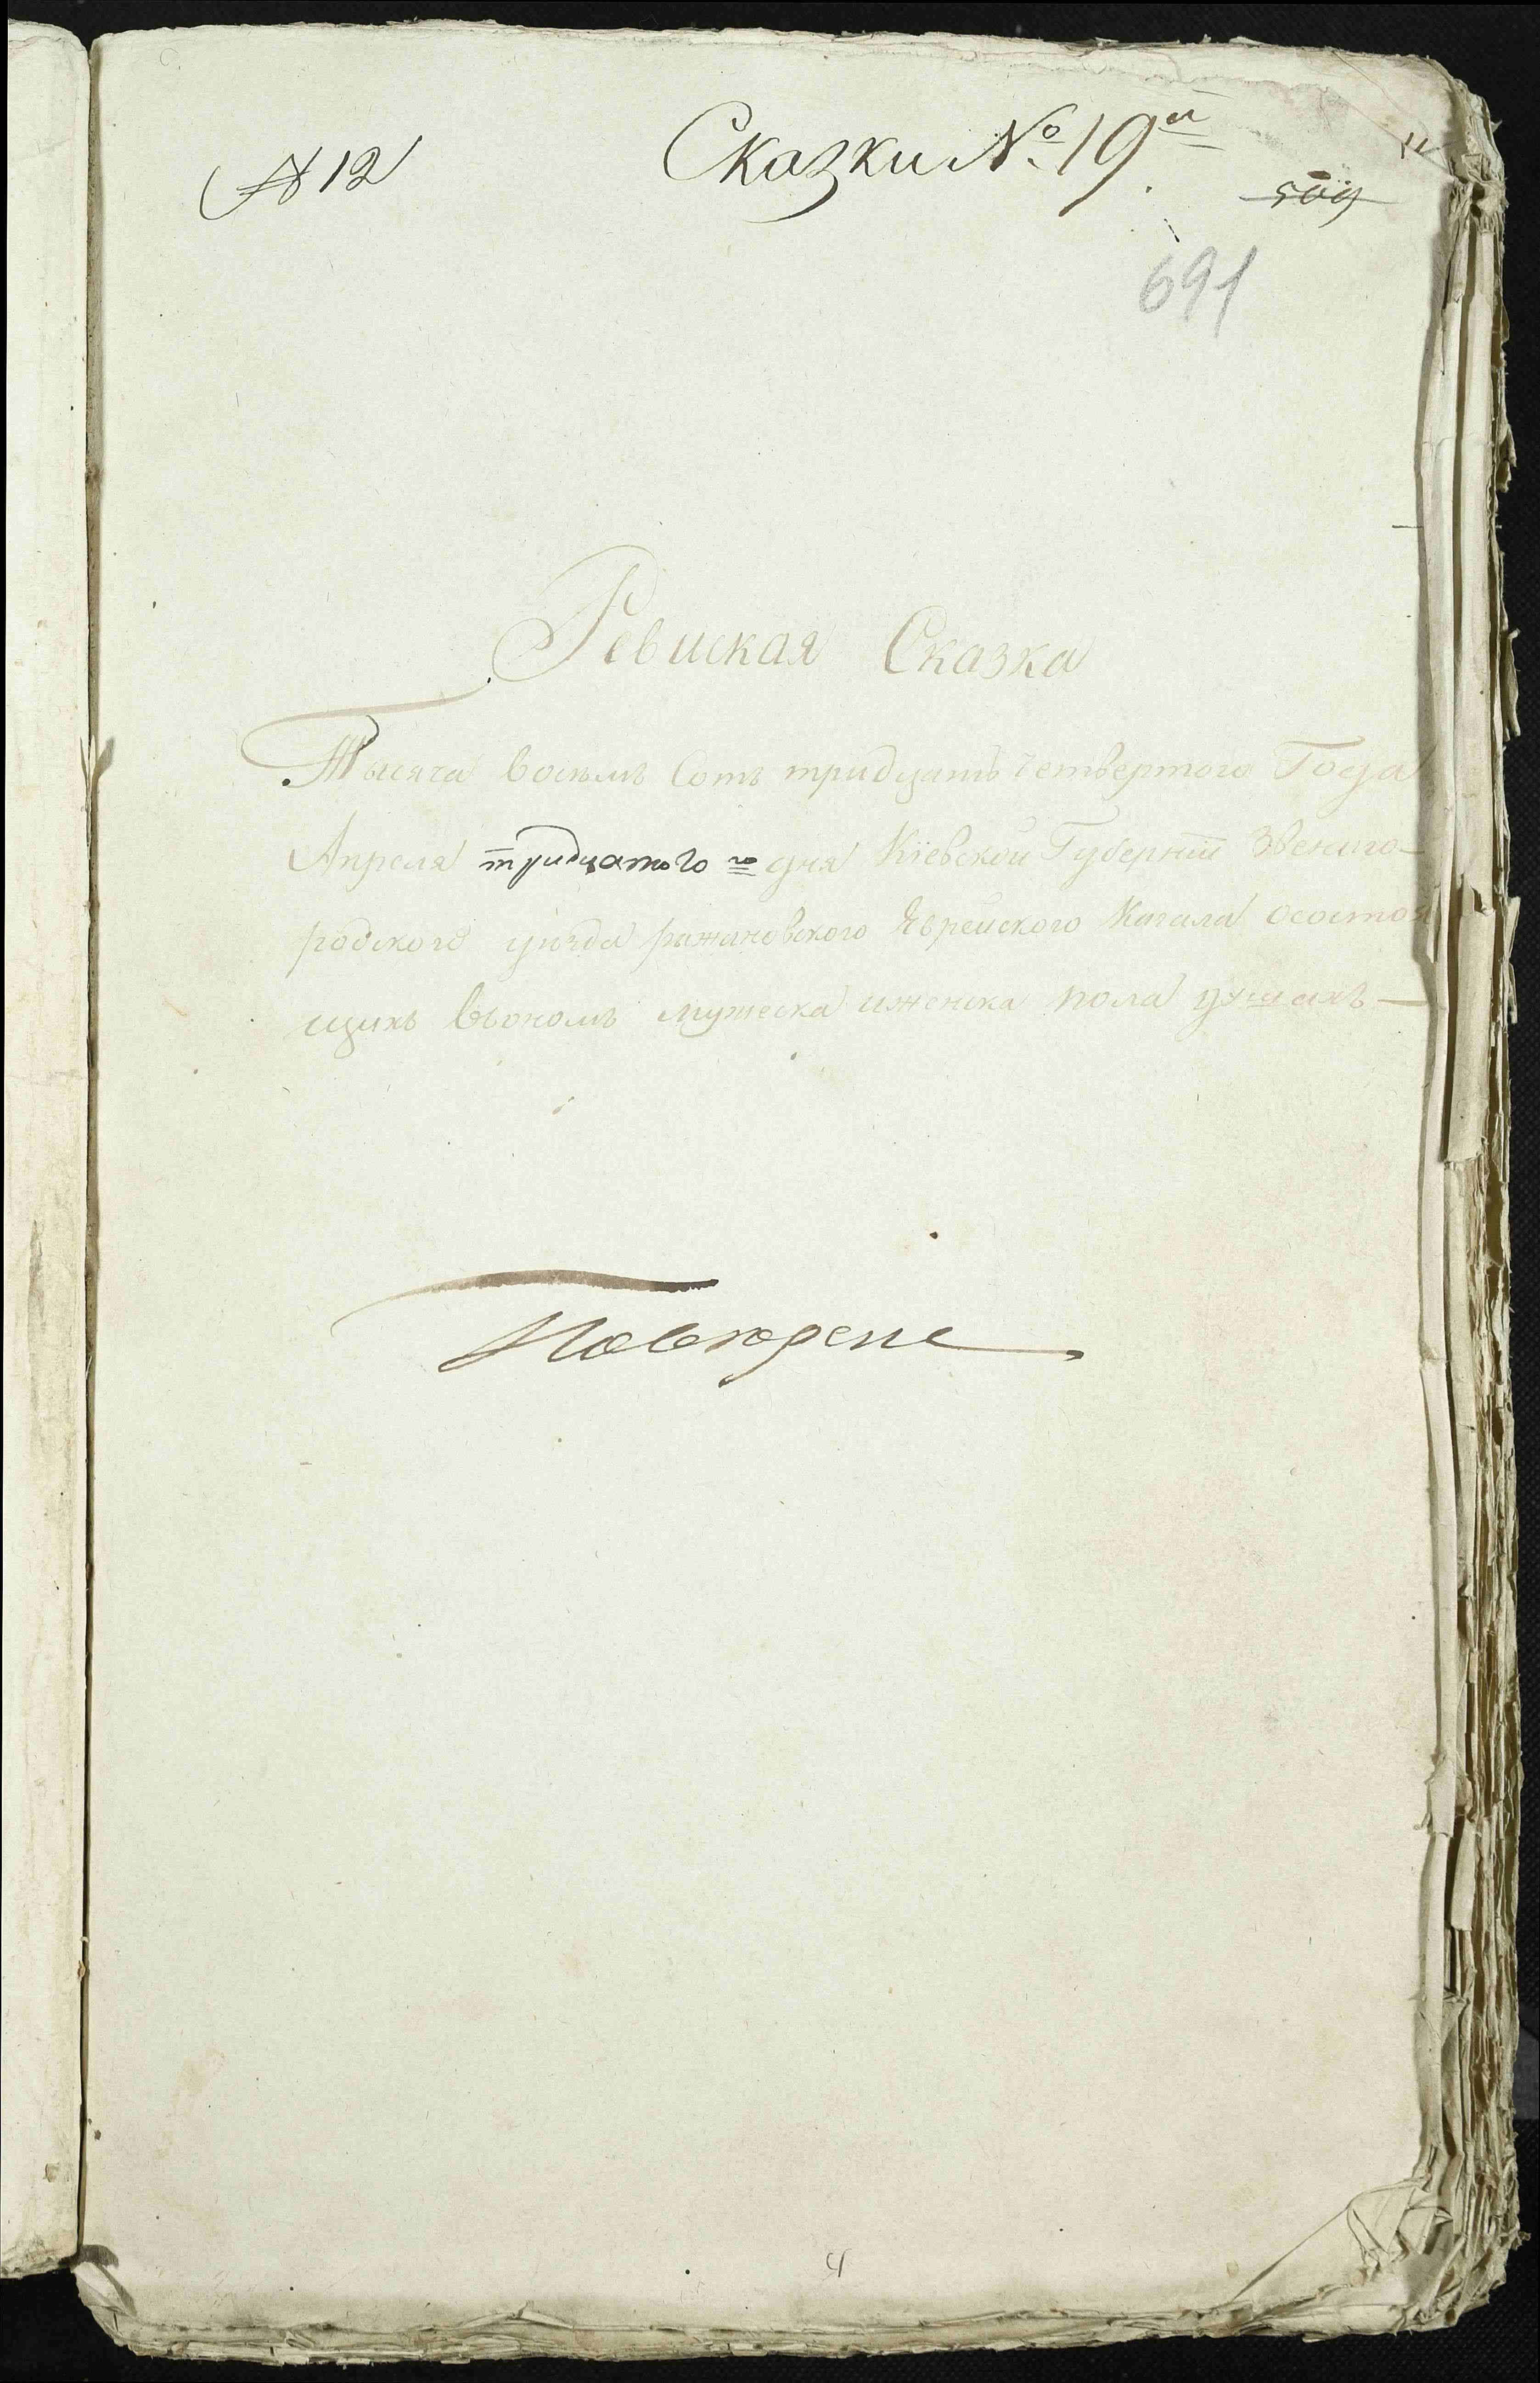 № 12
Сказки № 19й
11
509
691
Ревиская Сказка
Тысяча восемь Сотъ тридцать четвертого Года
Апреля тридцатого го дня Кіевской Губерніи Звениго-
родского уезда рыжановского Еврейского Кагала осостоя
щихъ въономъ мужеска иженска пола душахъ —
4